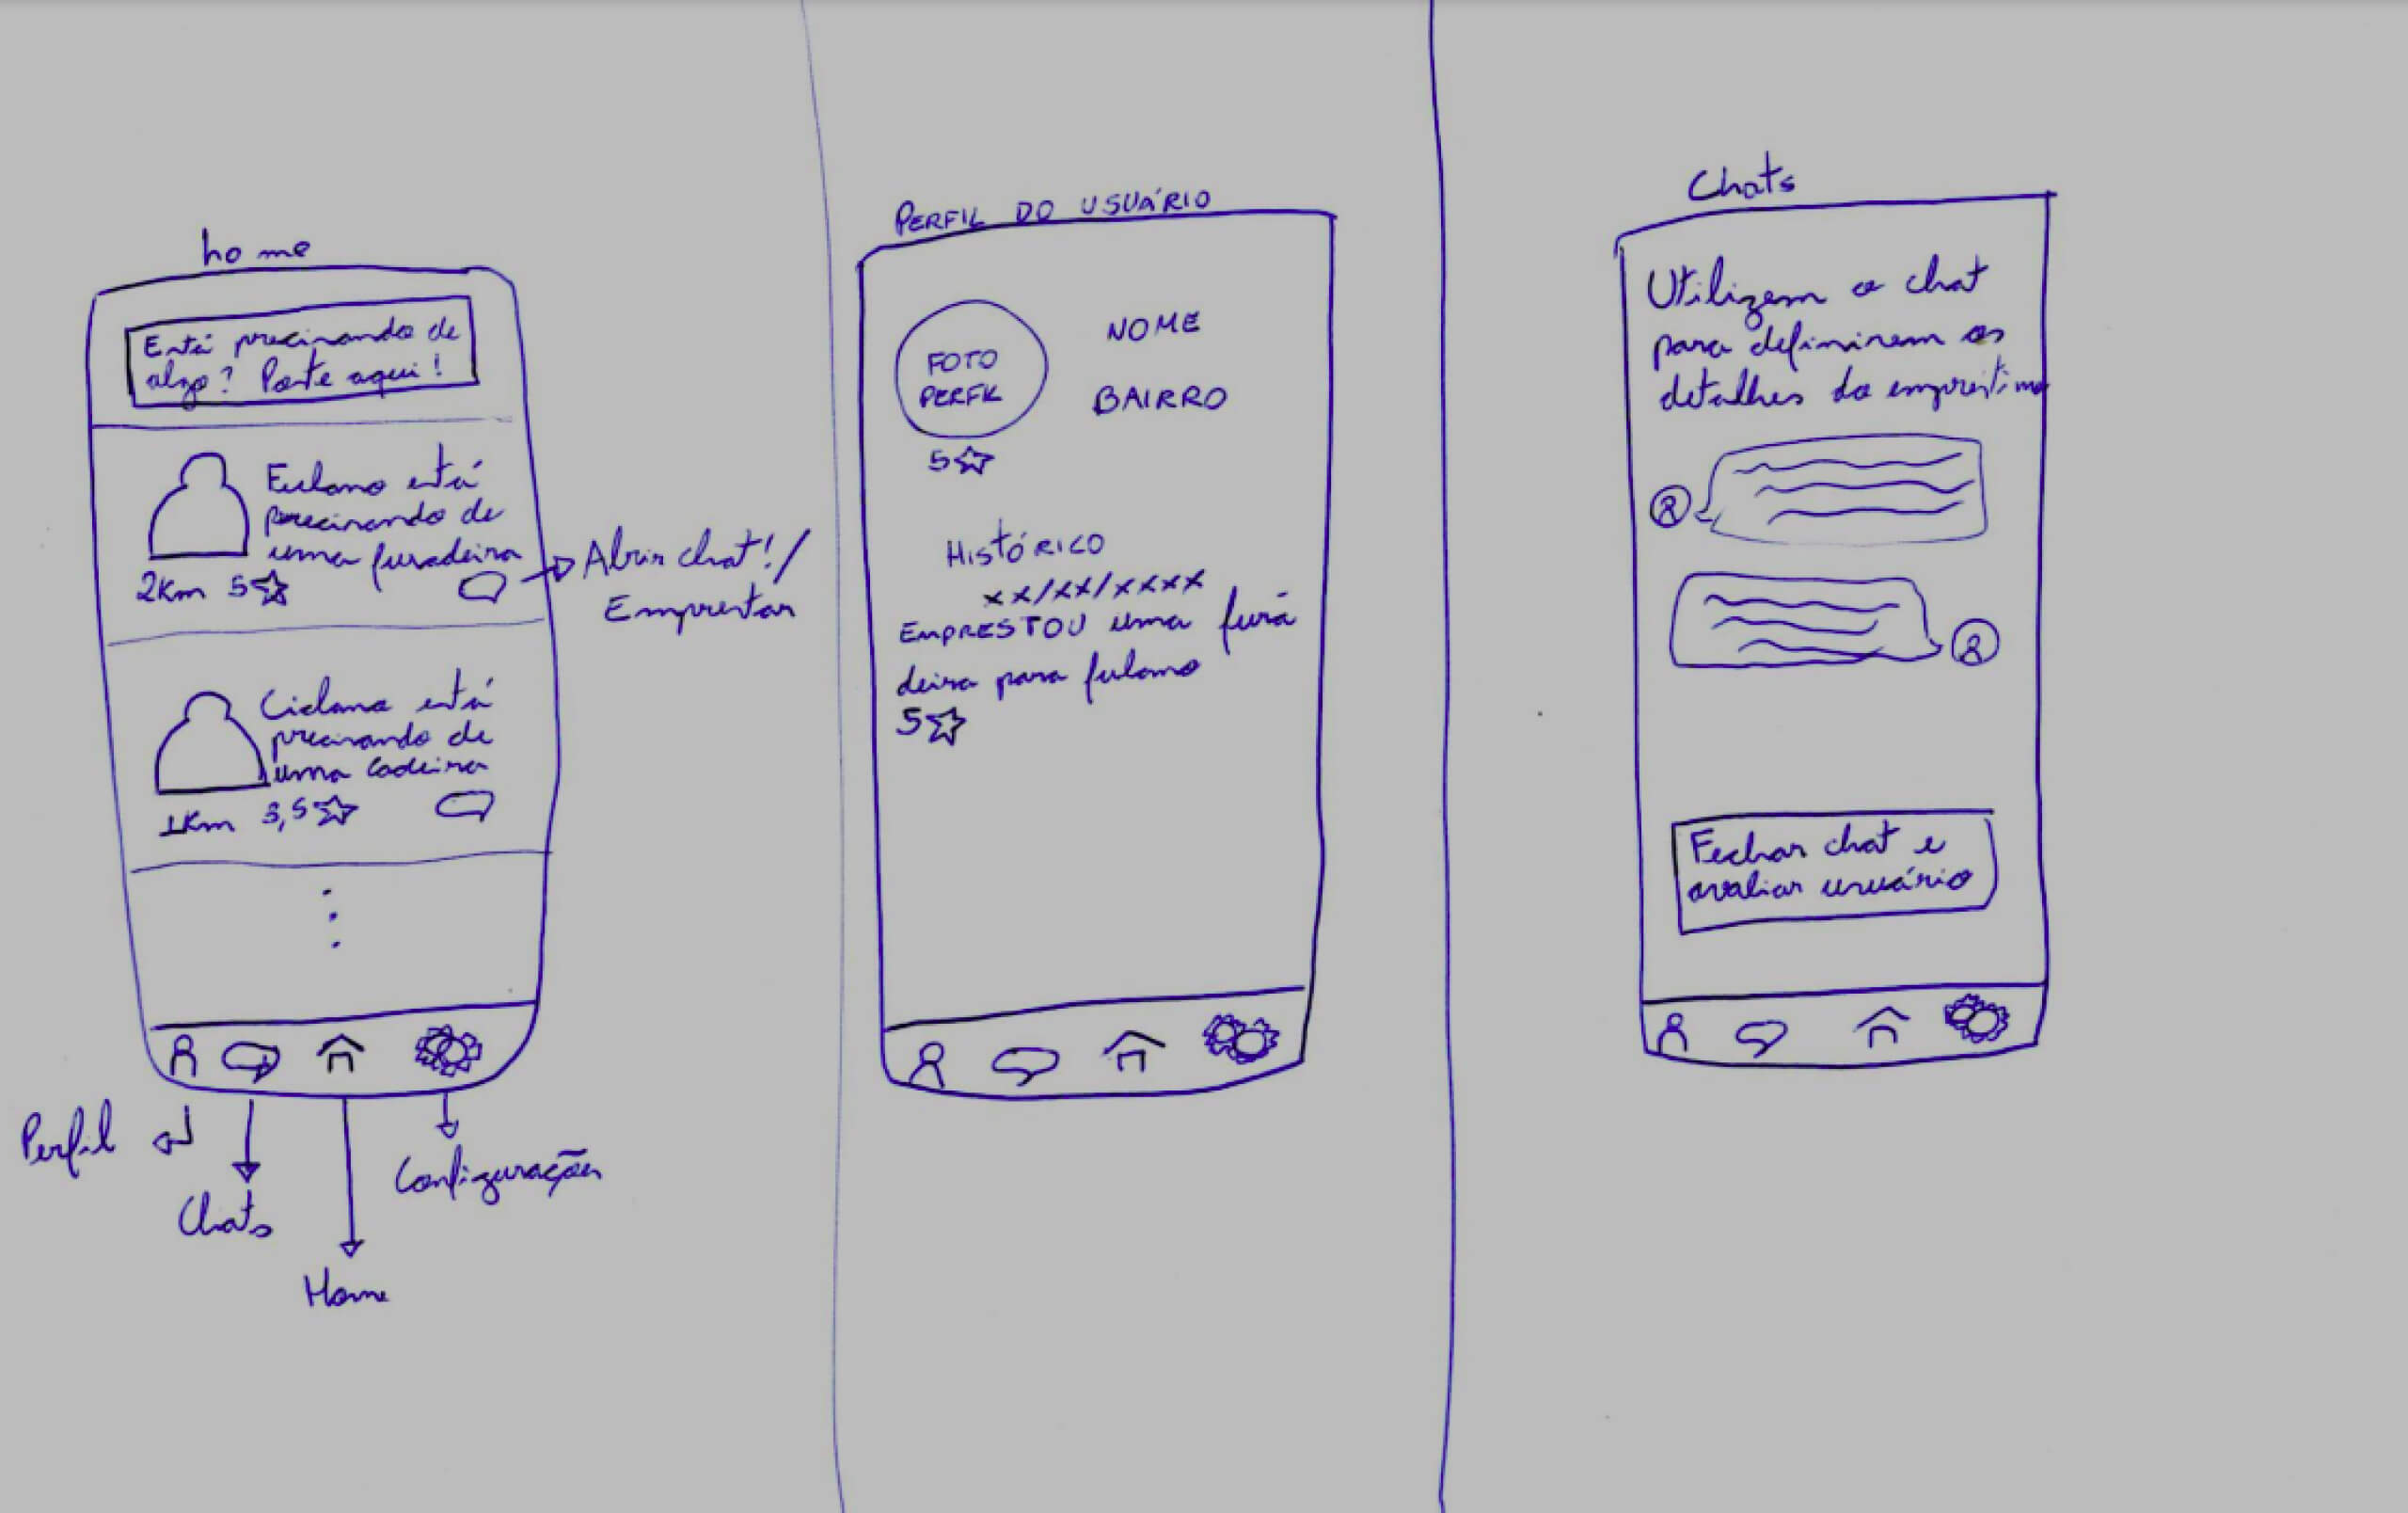 home
Está precisando de
algo? Poste aqui!
Fulano está
precisando de
uma furadeira
2Km 5
Abrir chat!/
Emprestar
Ciclana está
precisando de
uma cadeira
1Km 3,5
Perfil
Chats
Home
Configurações
PERFIL DO USUÁRIO
FOTO
PERFIL
NOME
BAIRRO
5
HISTÓRICO
xx/xx/xxxx
EMPRESTOU uma fura
deira para fulano
5
Chats
Utilizem o chat
para definirem os
detalhes do empréstimo
Fechar chat e
avaliar usuário